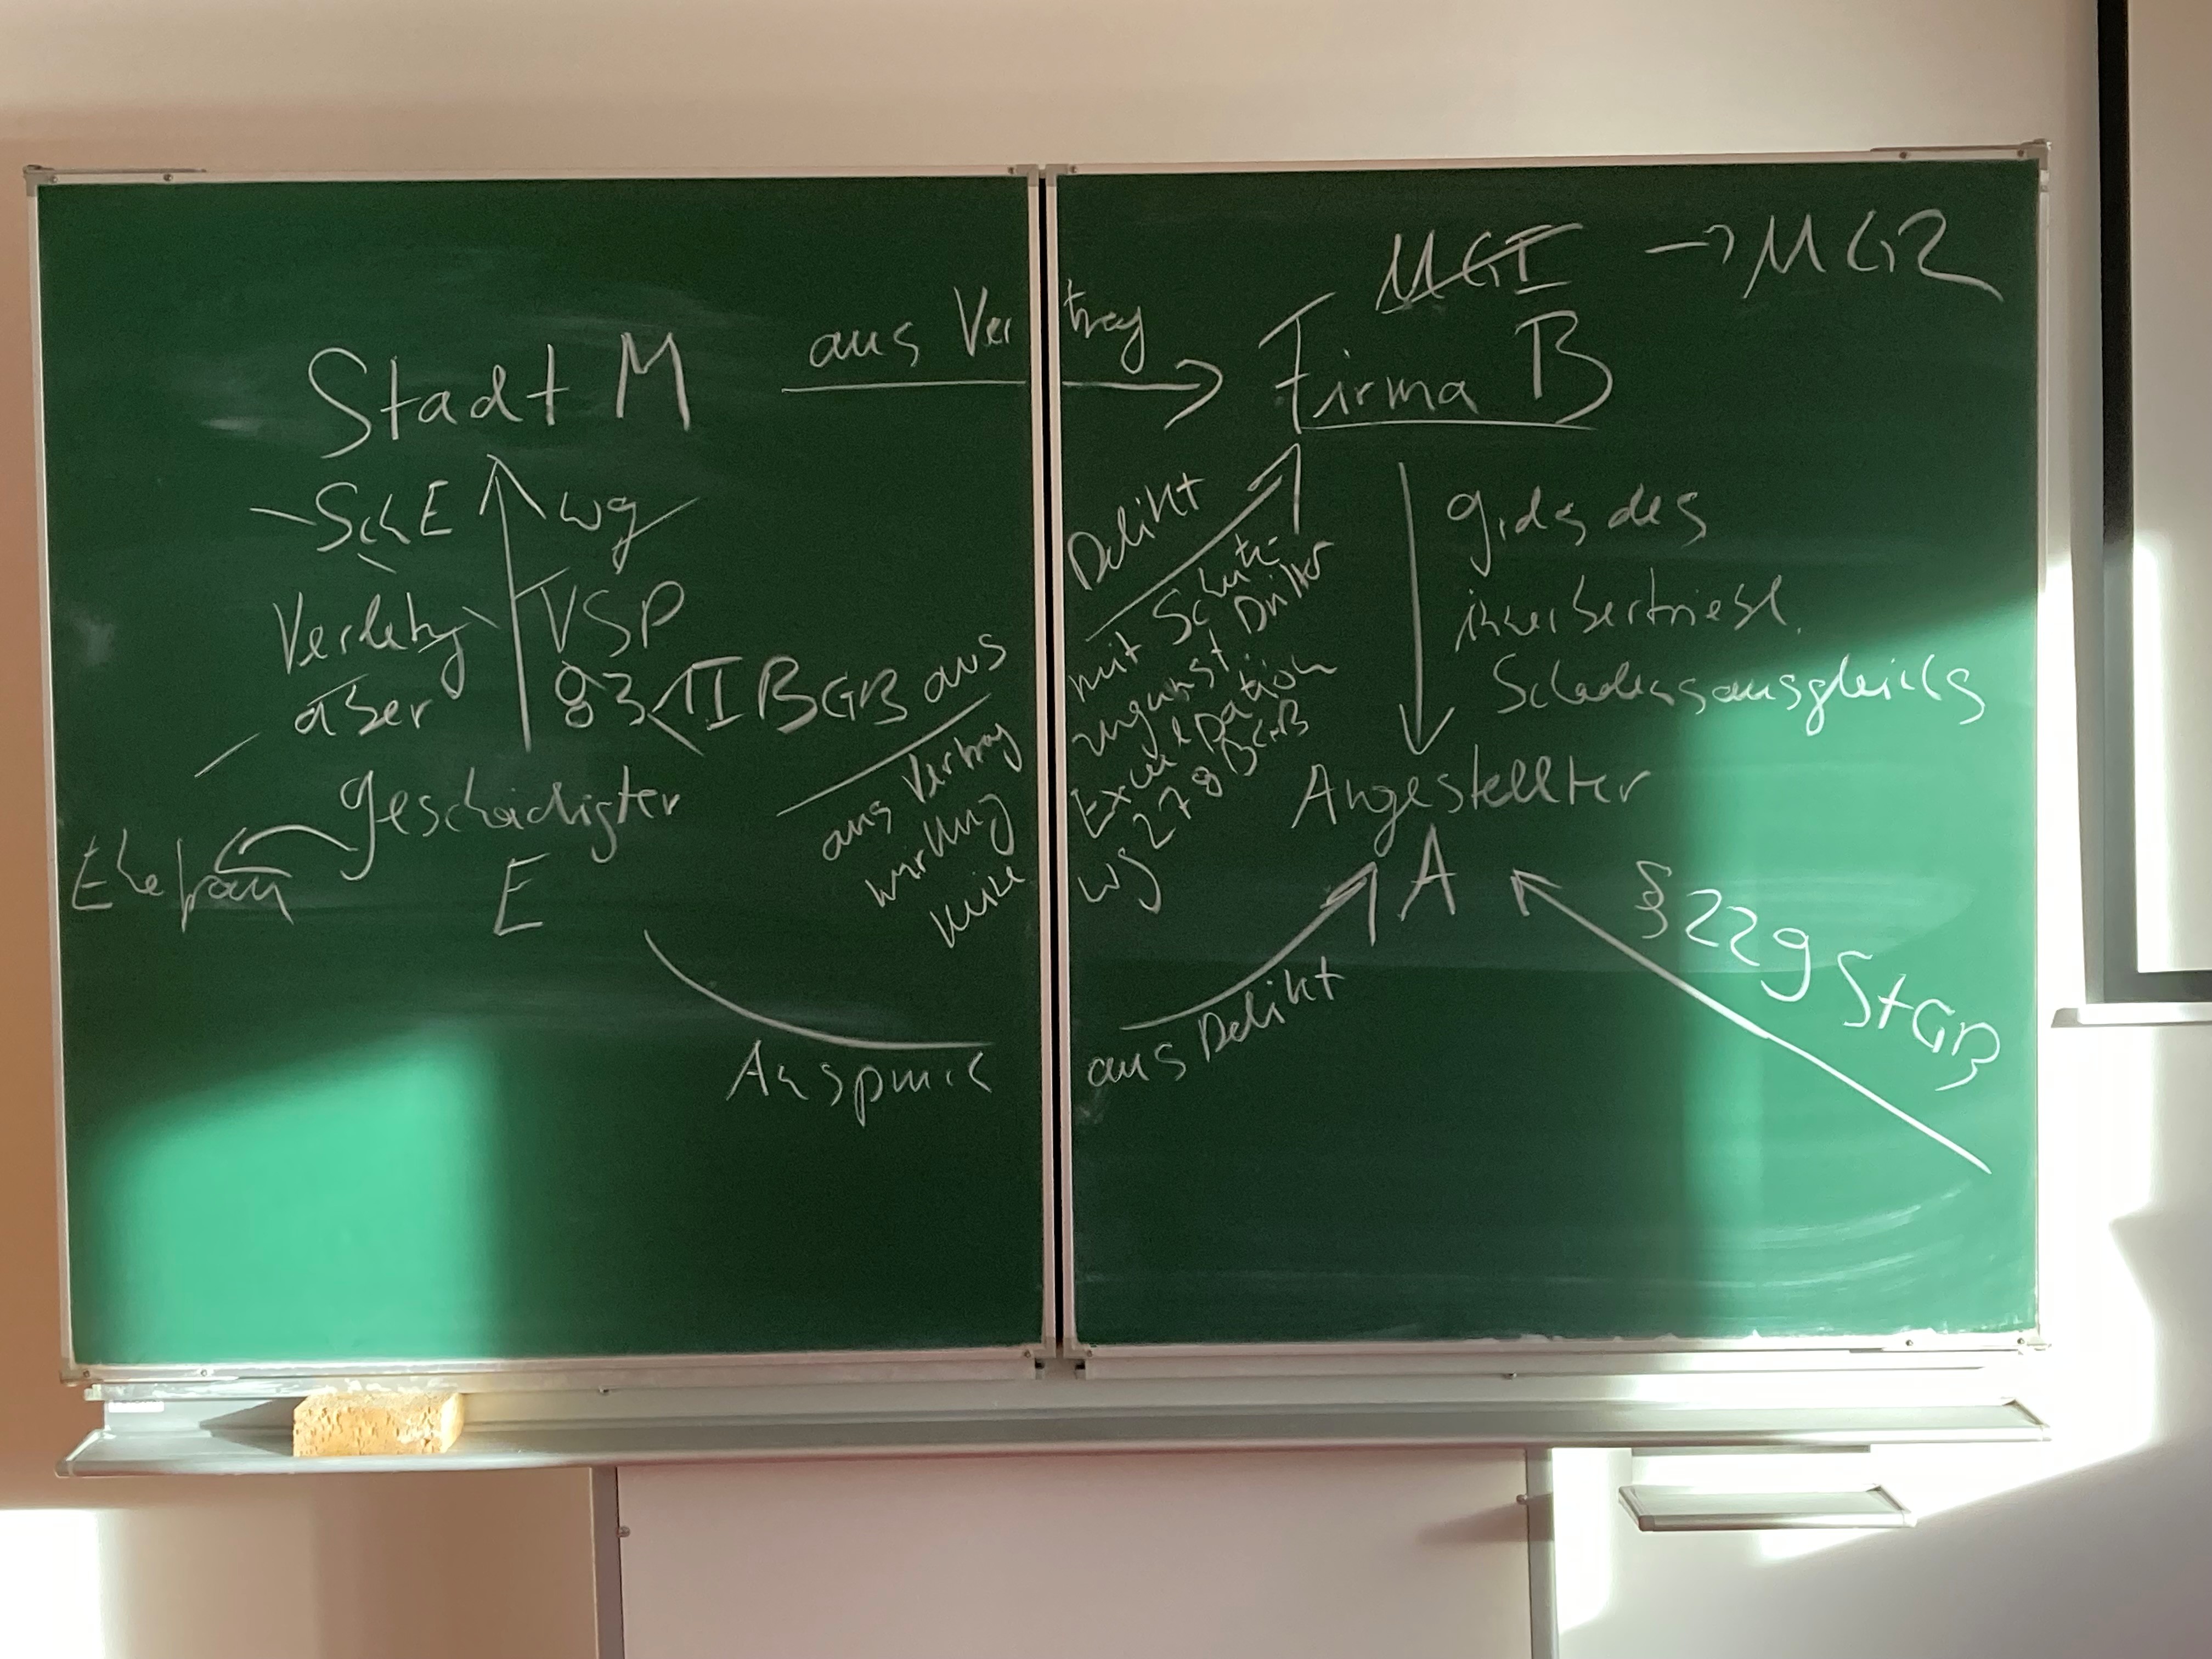 MGI → MGR
Stadt M aus Vertrag Firma B
SchE wg
Verletzg VSP
aber 831 II BGB aus
Geschädigter
E
Ehefrau
Delikt
aus Vertrag mit Schutz-
wirkung zugunst. Dritter
keine Exculpation
wg 278 BGB
g.ds des
innerbetriebl.
Schadensausgleichs
Angestellter
A
§229 StGB
Anspruch aus Delikt